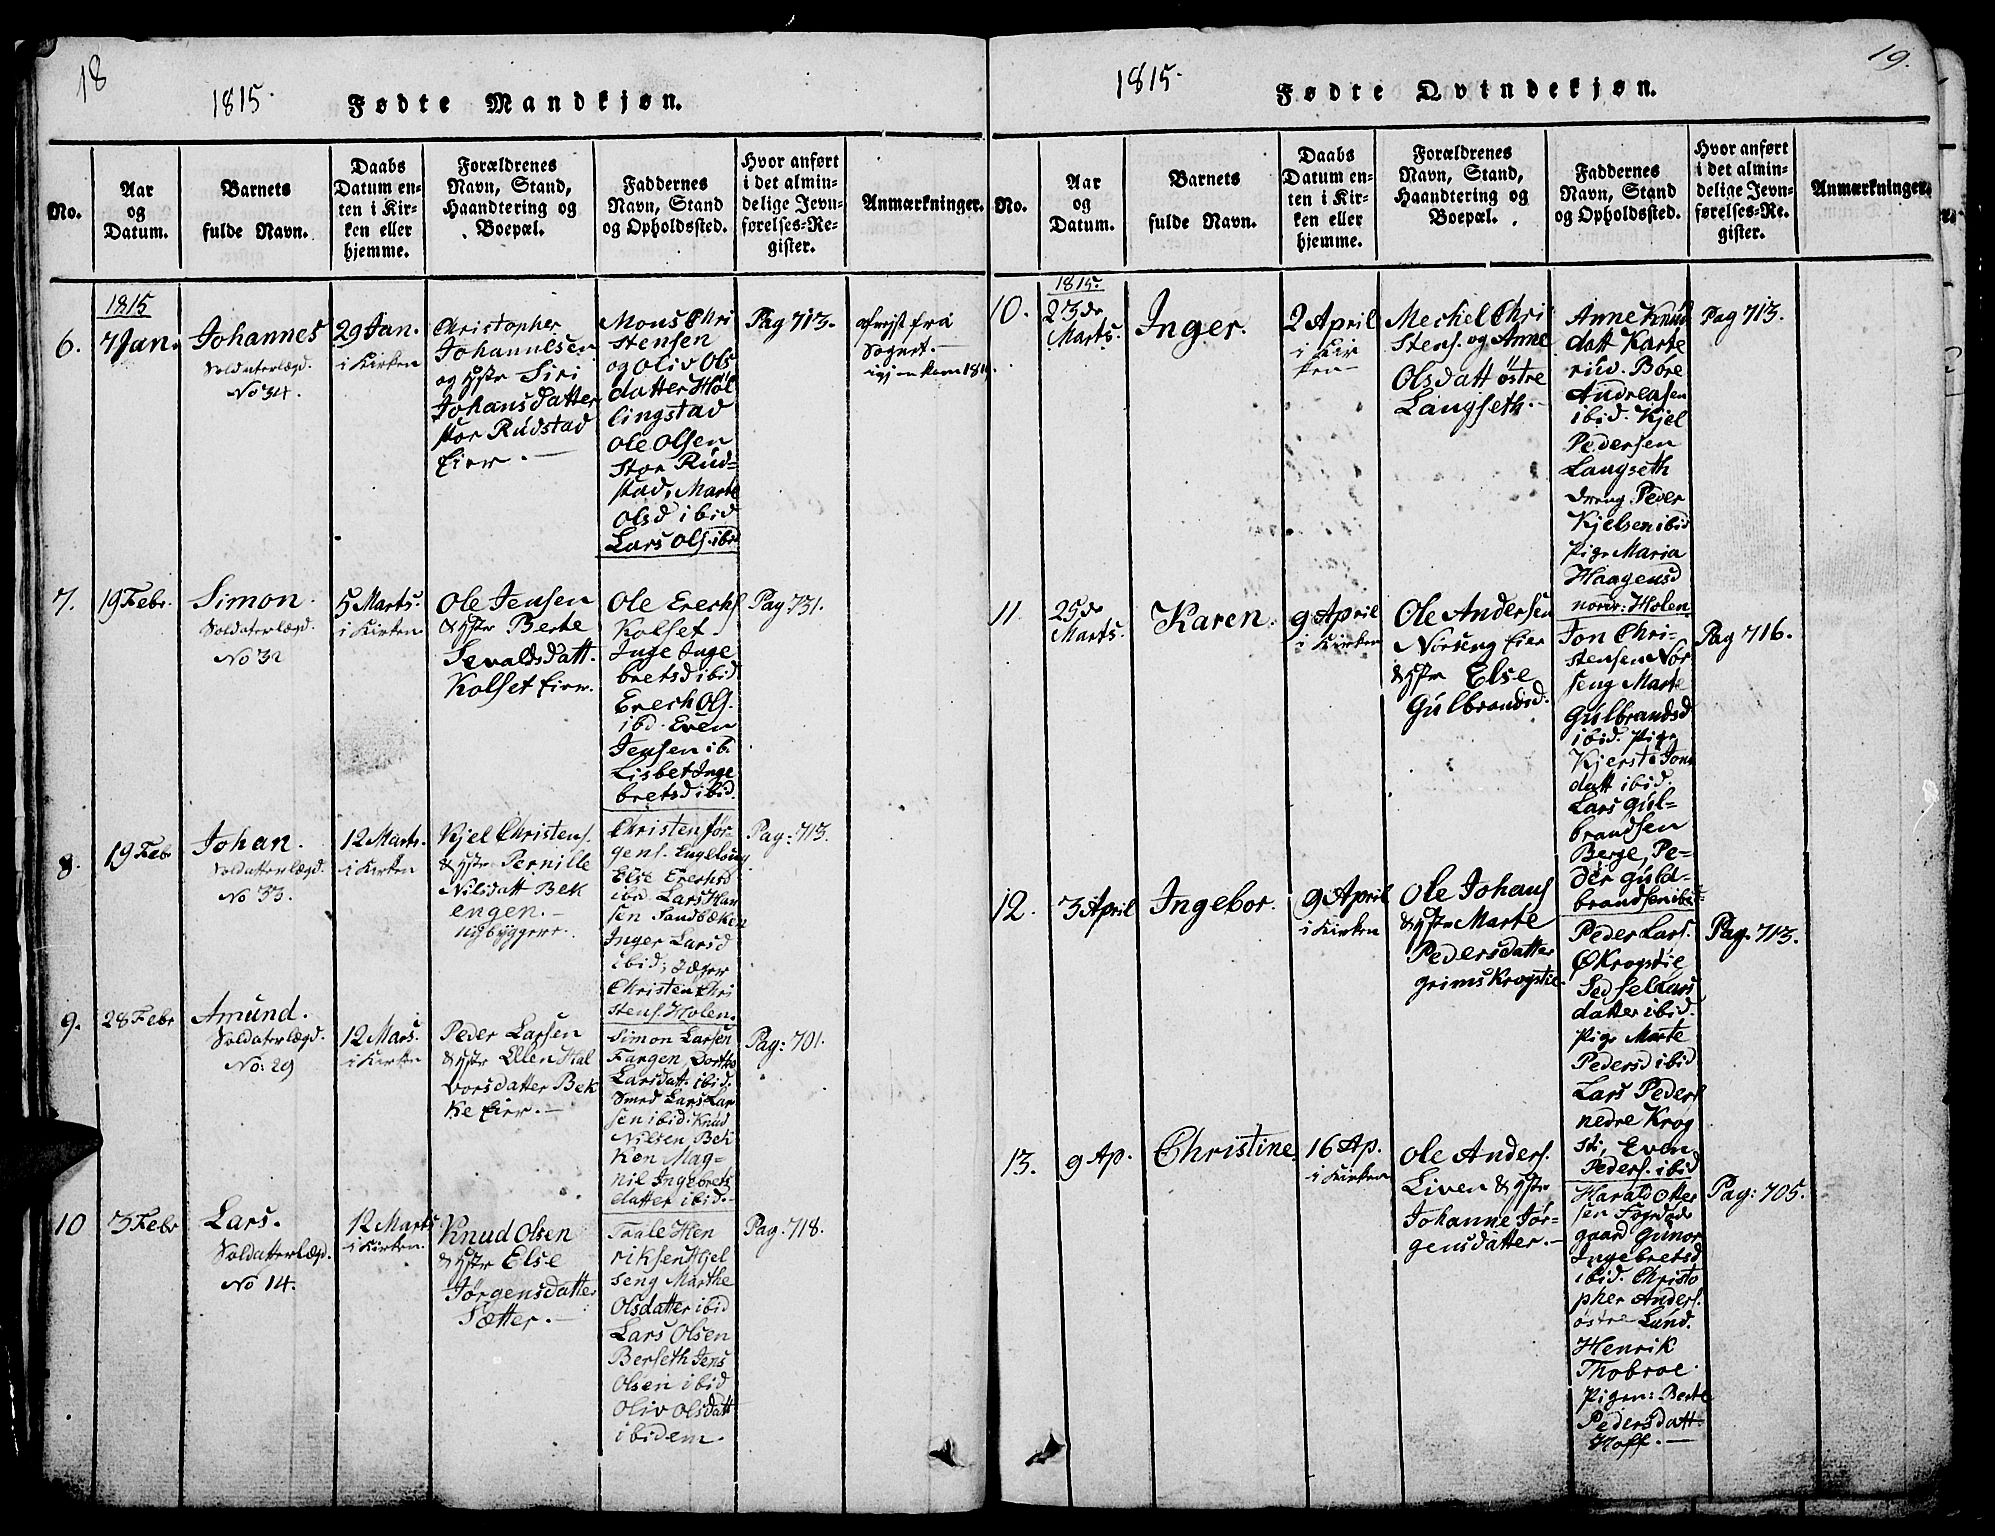 18
1815.
Fødte Mandkjøn.
No.
Aar
og
Datum.
Barnets
fulde Navn.
Daabs
Datum en-
ten i Kir-
ken eller
hjemme.
Forældrenes
Navn, Stand,
Haandtering og
Boepæl.
Faddernes
Navn, Stand
og Opholdssted.
Hvor anført
i det almin-
delige Jevn-
førelses-Re-
gister.
Anmærkninger.
6.
1815
7 Jan.
Johannes
Soldaterlægd.
No 34.
29 Jan.
i Kirken
Christopher
Johannesen
og hstr Siri
Johansdatter
stor Rudstad
Eier. —
Mons Chri
stensen
og Oliv Ols
datter Høl
lingstad
Ole Olsen
Stor Rud-
stad, Marte
Olsd ibid
Lars Ols. ibid
Pag 713.
afrejst fra
Sognet. —
igjenkom
7.
19 Febr.
Simon.
Soldaterlægd.
No 32
5 Marts.
i Kirken
Ole Jensen
& hstr Berte
Sevaldsdatt.
Kolset Eier.
Ole Erechs
Kolset.
Inge Inge
bretsd ibid
Erech Ols.
ibd. Even
Jensen ib.
Lisbet Inge
bretsd ibid.
Pag 731.
8.
19 Febr
Johan.
Soldatterlægd.
No 33.
12 Marts.
i Kirken
Kjel Christens.
& hstr Pernille
Nilsdatt Bek
engen. —
nybyggere.
Christen Jør-
gens. Engeloug
Else Erechsd
ibid Lars Han
sen Sandbæken
Inger Larsd
ibid; Jæger
Christen Chri
stens. Holen.
Pag: 713.
9.
28 Febr
Amund.
Soldaterlægd.
No: 29
12 Mars.
i Kirken
Peder Larsen
& hstr Ellen Hal
vorsdatter Bek
ke Eier. —
Simon Larsen
Fangen, Dorthe
Larsdatt. ibid.
Smed Lars Lar
sen ibid. Knud
Nilsen Bek
ken Mag-
nil Ingebrets
datter ibid. —
Pag: 701.
10
3 Febr
Lars.
Soldatterlægd.
No 14.
12 Marts
i Kirken.
Knud Olsen
& hstr Else
Jørgensdatter
Sætter. —
Taale Hen
riksen Hjel
seng Marthe
Olsdatter ibid
Lars Olsen
Berseth Jens
Olsen ibid
Oliv Olsdatt
ibidem. —
Pag: 718.
19.
1815.
Fødte Qvindekjøn.
No.
Aar
og
Datum.
Barnets
fulde Navn.
Daabs
Datum en-
ten i Kir-
ken eller
hjemme.
Forældrenes
Navn, Stand,
Haandtering og
Boepæl.
Faddernes
Navn, Stand
og Opholdssted.
Hvor anført
i det almin-
delige Jevn-
førelses-Re-
gister.
Anmærkninger.
10.
1815.
23de
Marts.
Inger.
2 April
i Kir
ken —
Mechel Chri
stens. og Anne
Olsdatt østre
Langseth. —
Anne Knud
datt Karte
rud. Børe
Andreasen
ibid. Kjel
Pedersen
Langseth
dreng. Peder
Kjelsen ibid
Pige Maria
Haagensd
nordr: Holen
Pag 713.
11
25de
Marts.
Karen.
9 April
i Kirken
Ole Andersen
Norseng Eier
& hstr Else
Gulbrandsd.
Jon Chri-
stensen Nor
seng Marte
Gulbrandsd
ibid. Pige
Kjersti Jons
datt ibid.
Lars Gul-
brandsen
Berge, Pe-
der Guld-
brandsen ibid
Pag 716.
12.
3 April
Ingebor.
9 April
i Kirken
Ole Johans
& hstr Marte
Pedersdatter
Grims Krogstie
Peder Lars.
Ø Krogstie
Sedsel Lars
datter ibid.
Pige Marte
Pedersd ibid
Lars Peders
nedre Krog
sti, Even
Peders. ibid
Pag. 713.
13.
9 Ap.
Christine.
16 Ap.
i Kirken
Ole Anders.
Liven & hstr
Johanne Jør-
gensdatter. —
Harald Otter
sen Fogdøde
gaard Gunor
Ingebretsd
ibid. Christo
pher Anders.
østre Lund.
Henrik
Thobroe.
Pigen: Berte
Pedersdatt.
Hoff. —
Pag: 705.